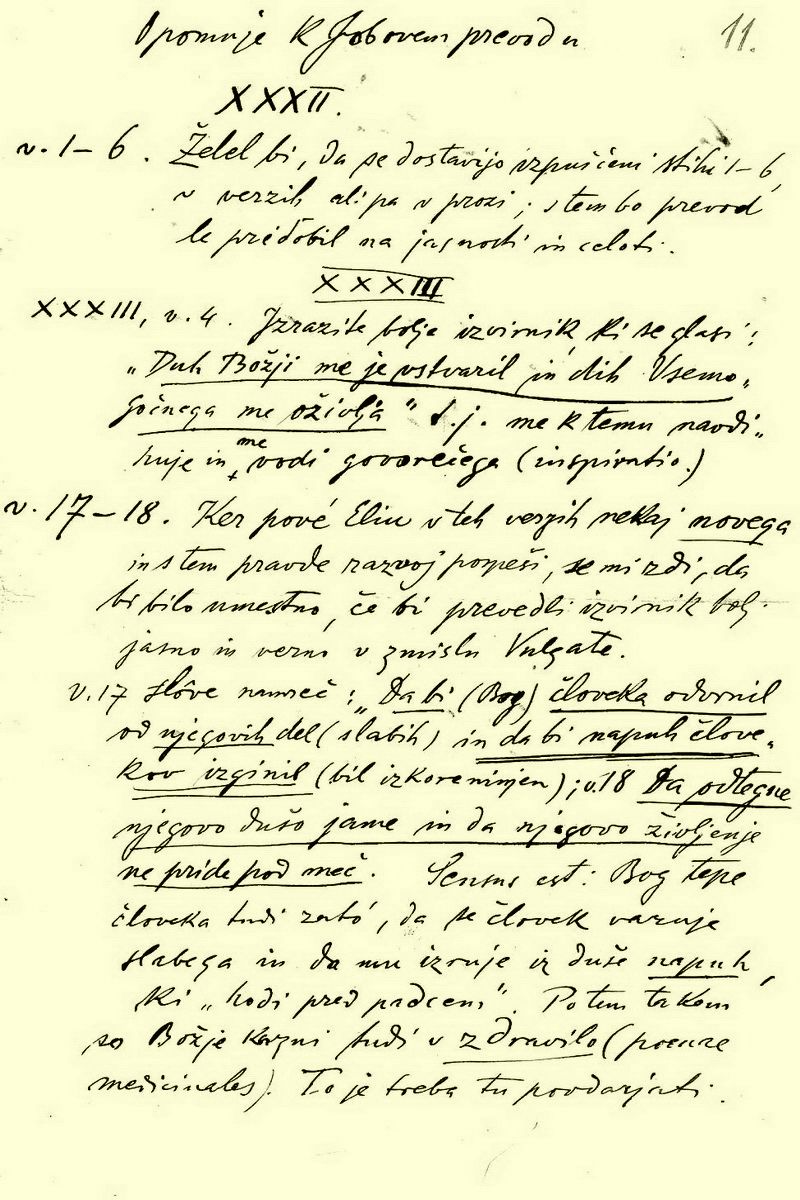 Opomnje k Jobovem prevodu 11.
XXXII.
v. 1–6. Želel bi, da se dostavijo izpuščeni stihi 1–6,
v verzih ali pa v prozi; s tem bo prevod
le pridobil na jasnosti in celoti.
XXXIII
XXXIII, v. 4. Izrazite bolje izvirnik, ki se glasi:
„Duh Božji me je vstvaril in dih Vsemo„
gočnega me oživlja" t.j. me k temu navdi„
huje in me vodi govorečega (inspiratio.)
v. 17–18. Ker pové Eliu v teh verzih nekaj novega
in s tem pravde razvoj pospeši, se mi zdi, da
bi bilo umestno, če bi prevedli izvirnik bolj
jasno in verno v zmislu Vulgate.
v. 17 slôve namreč: „Da bi (Bog) človeka odvrnil
od njegovih del (slabih) in da bi napuh člove„
kov izginil (bil izkoreninjen); v. 18 Da odtegne
njegovo dušo jame in da njegovo življenje
ne pride pod meč. Sensus est: Bog tepe
človeka tudi zató, da se človek varuje
slabega in da mu izruje iz duše napuh,
ki „hodi pred padcem". Potem takem
so Božje kazni tudi v zdravilo (poenae
medicinales). To je treba tu povdarjati.